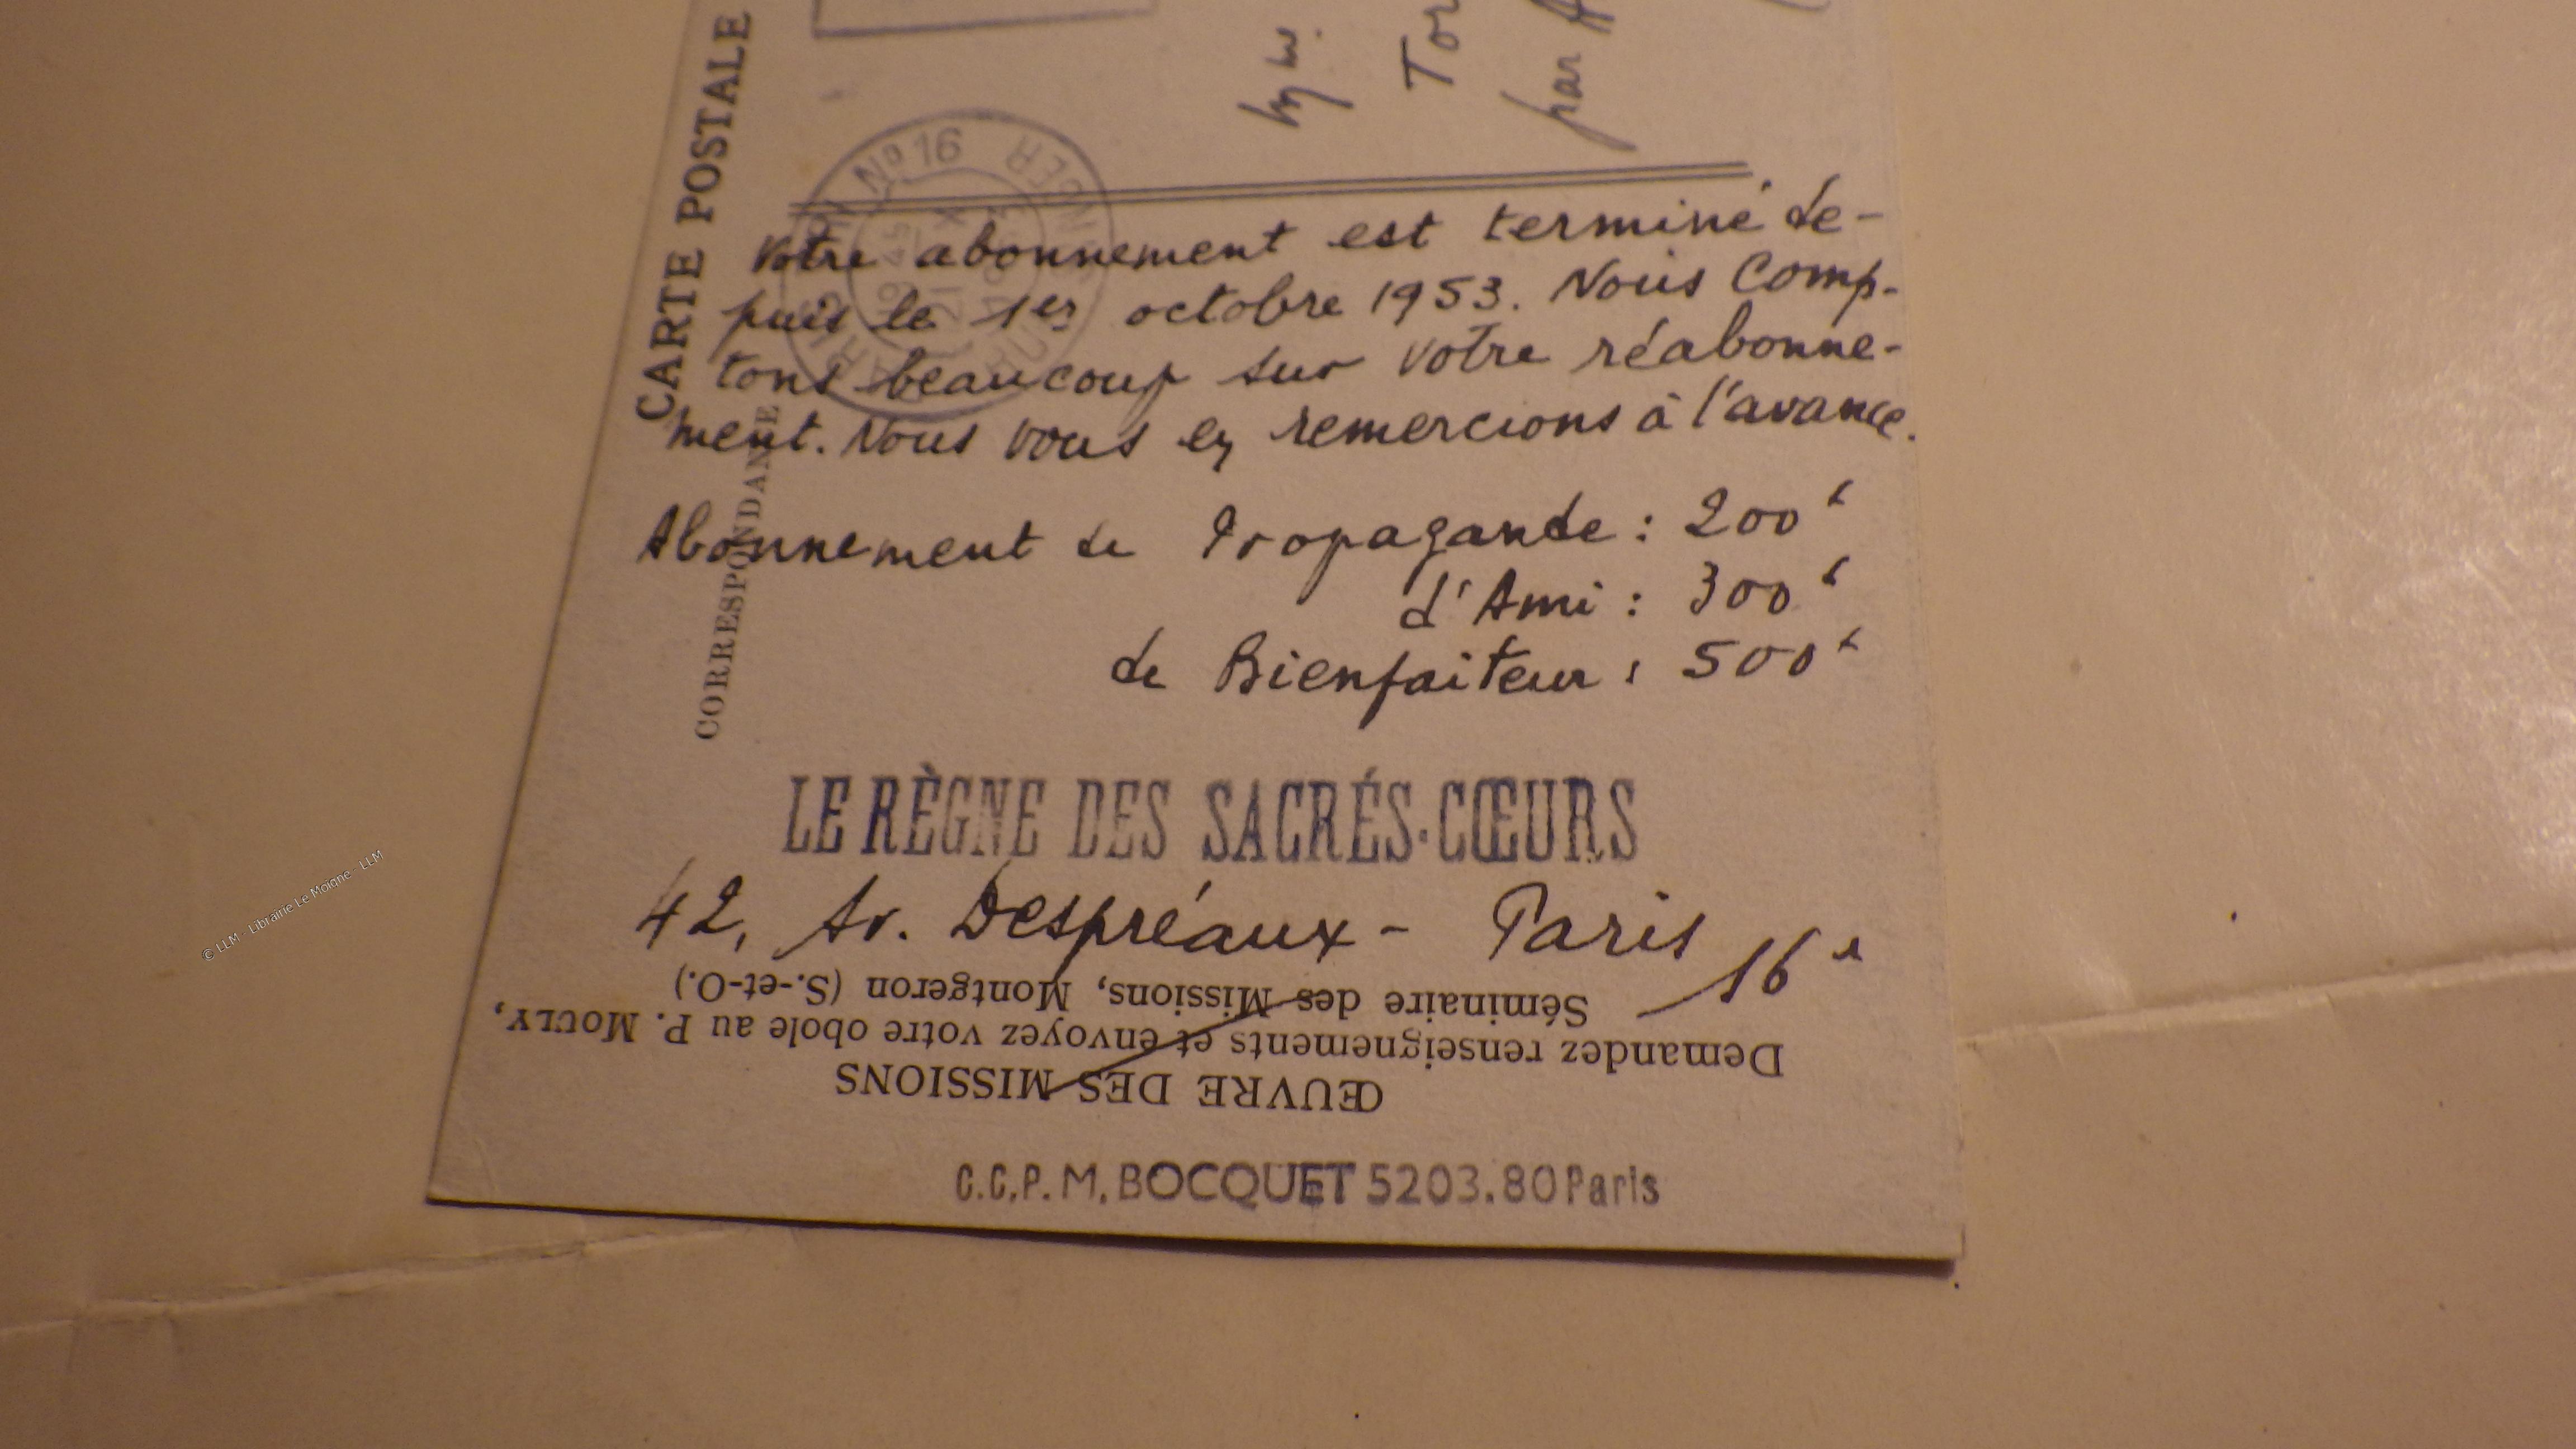 CARTE POSTALE
CORRESPONDANCE
No 16
Tor
par A
Votre abonnement est terminé de-
puis le 1er octobre 1953. Nous Comp-
tons beaucoup sur votre réabonne-
ment. Nous vous en remercions à l'avance.
Abonnement de Propagande : 200 f
d'Ami : 300 f
de Bienfaiteur : 500 f
LE RÈGNE DES SACRÉS-CŒURS
42, Av. Despréaux - Paris 16e
ŒUVRE DES MISSIONS
Demandez renseignements et envoyez votre obole au P. MOULY,
Séminaire des Missions, Montgeron (S.-et-O.)
C.C.P. M. BOCQUET 5203.80 Paris
© LLM - Librairie Le Moigne - LLM